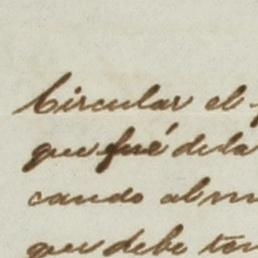 Circular el
que fué dela
cando al m
que debe ton